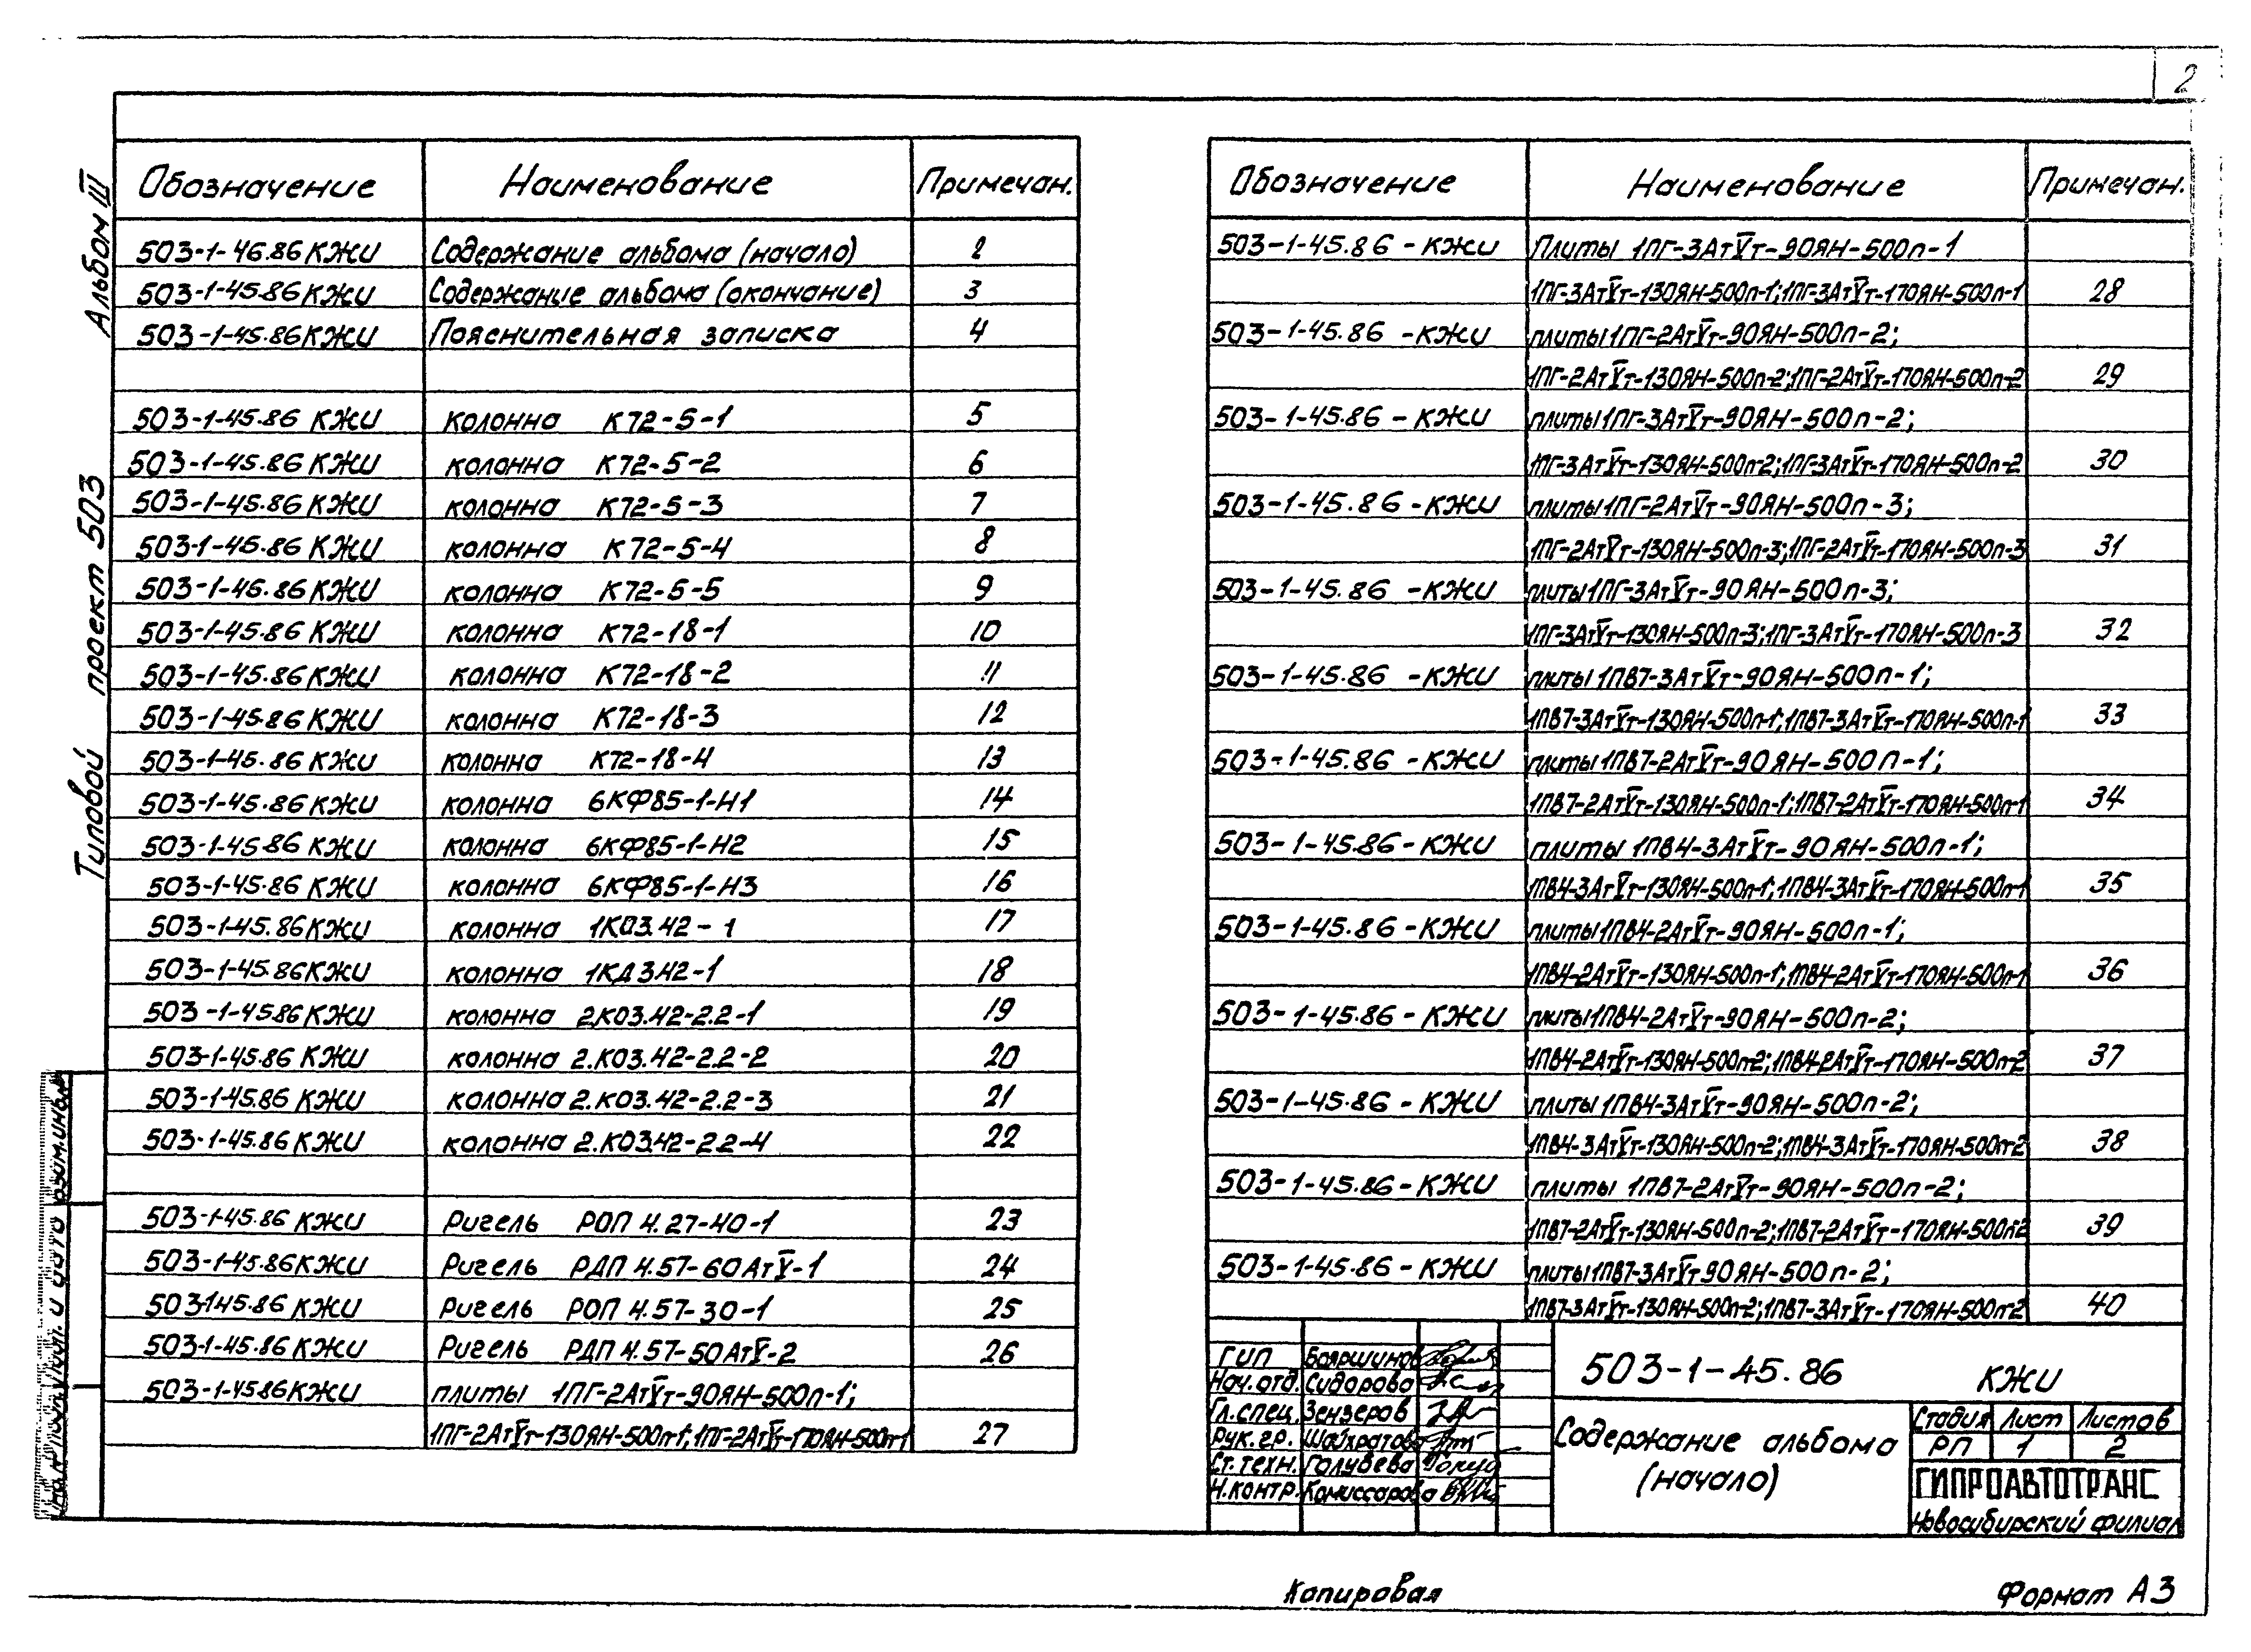 2
Альбом III
Типовой проект 503
Обозначение Наименование Примечан.
503-1-46.86 КЖИ Содержание альбома (начало) 2
503-1-45.86 КЖИ Содержание альбома (окончание) 3
503-1-45.86 КЖИ Пояснительная записка 4
503-1-45.86 КЖИ колонна К72-5-1 5
503-1-45.86 КЖИ колонна К72-5-2 6
503-1-45.86 КЖИ колонна К72-5-3 7
503-1-45.86 КЖИ колонна К72-5-4 8
503-1-46.86 КЖИ колонна К72-5-5 9
503-1-45.86 КЖИ колонна К72-18-1 10
503-1-45.86 КЖИ колонна К72-18-2 11
503-1-45.86 КЖИ колонна К72-18-3 12
503-1-45.86 КЖИ колонна К72-18-4 13
503-1-45.86 КЖИ колонна 6КФ85-1-Н1 14
503-1-45.86 КЖИ колонна 6КФ85-1-Н2 15
503-1-45.86 КЖИ колонна 6КФ85-1-Н3 16
503-1-45.86 КЖИ колонна 1КО3.42-1 17
503-1-45.86 КЖИ колонна 1КД3.42-1 18
503-1-45.86 КЖИ колонна 2.КО3.42-2.2-1 19
503-1-45.86 КЖИ колонна 2.КО3.42-2.2-2 20
503-1-45.86 КЖИ колонна 2.КО3.42-2.2-3 21
503-1-45.86 КЖИ колонна 2.КО3.42-2.2-4 22
503-1-45.86 КЖИ Ригель РОП 4.27-40-1 23
503-1-45.86 КЖИ Ригель РДП 4.57-60АтV-1 24
503-1-45.86 КЖИ Ригель РОП 4.57-30-1 25
503-1-45.86 КЖИ Ригель РДП 4.57-50АтV-2 26
503-1-45.86 КЖИ плиты 1ПГ-2АтVт-90ЯН-500п-1;
1ПГ-2АтVт-130ЯН-500п-1; 1ПГ-2АтVт-170ЯН-500п-1 27
Обозначение Наименование Примечан.
503-1-45.86-КЖИ Плиты 1ПГ-3АтVт-90ЯН-500п-1
1ПГ-3АтVт-130ЯН-500п-1; 1ПГ-3АтVт-170ЯН-500п-1 28
503-1-45.86-КЖИ плиты 1ПГ-2АтVт-90ЯН-500п-2;
1ПГ-2АтVт-130ЯН-500п-2; 1ПГ-2АтVт-170ЯН-500п-2 29
503-1-45.86-КЖИ плиты 1ПГ-3АтVт-90ЯН-500п-2;
1ПГ-3АтVт-130ЯН-500п-2; 1ПГ-3АтVт-170ЯН-500п-2 30
503-1-45.86-КЖИ плиты 1ПГ-2АтVт-90ЯН-500п-3;
1ПГ-2АтVт-130ЯН-500п-3; 1ПГ-2АтVт-170ЯН-500п-3 31
503-1-45.86-КЖИ плиты 1ПГ-3АтVт-90ЯН-500п-3;
1ПГ-3АтVт-130ЯН-500п-3; 1ПГ-3АтVт-170ЯН-500п-3 32
503-1-45.86-КЖИ плиты 1ПВ7-3АтVт-90ЯН-500п-1;
1ПВ7-3АтVт-130ЯН-500п-1; 1ПВ7-3АтVт-170ЯН-500п-1 33
503-1-45.86-КЖИ плиты 1ПВ7-2АтVт-90ЯН-500п-1;
1ПВ7-2АтVт-130ЯН-500п-1; 1ПВ7-2АтVт-170ЯН-500п-1 34
503-1-45.86-КЖИ плиты 1ПВ4-3АтVт-90ЯН-500п-1;
1ПВ4-3АтVт-130ЯН-500п-1; 1ПВ4-3АтVт-170ЯН-500п-1 35
503-1-45.86-КЖИ плиты 1ПВ4-2АтVт-90ЯН-500п-1;
1ПВ4-2АтVт-130ЯН-500п-1; 1ПВ4-2АтVт-170ЯН-500п-1 36
503-1-45.86-КЖИ плиты 1ПВ4-2АтVт-90ЯН-500п-2;
1ПВ4-2АтVт-130ЯН-500п-2; 1ПВ4-2АтVт-170ЯН-500п-2 37
503-1-45.86-КЖИ плиты 1ПВ4-3АтVт-90ЯН-500п-2;
1ПВ4-3АтVт-130ЯН-500п-2; 1ПВ4-3АтVт-170ЯН-500п-2 38
503-1-45.86-КЖИ плиты 1ПВ7-2АтVт-90ЯН-500п-2;
1ПВ7-2АтVт-130ЯН-500п-2; 1ПВ7-2АтVт-170ЯН-500п-2 39
503-1-45.86-КЖИ плиты 1ПВ7-3АтVт 90ЯН-500п-2;
1ПВ7-3АтVт-130ЯН-500п-2; 1ПВ7-3АтVт-170ЯН-500п-2 40
ГИП Бояршинов
Нач.отд. Сидорова
Гл.спец. Зензеров
Рук.гр. Шайхратова
Ст.техн. Голубева
Н.контр. Комиссарова
503-1-45.86 КЖИ
Содержание альбома
(начало)
Стадия Лист Листов
РП 1 2
ГИПРОАВТОТРАНС
Новосибирский филиал
взам.инв.№
и дата
Копировал
Формат А3